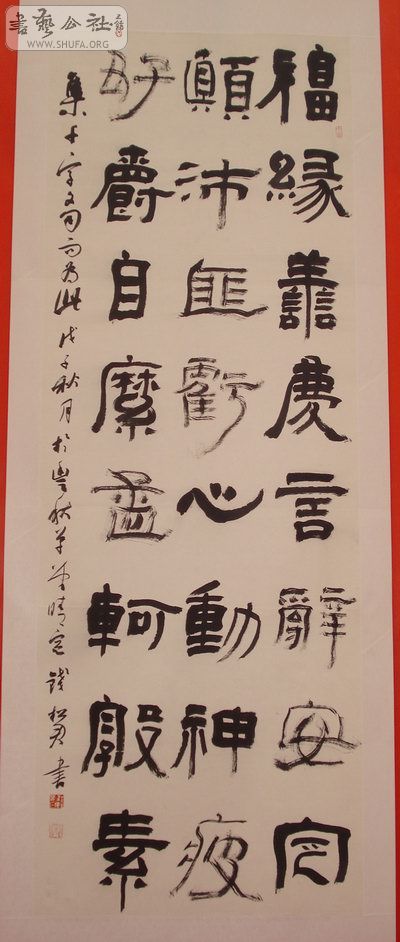 福緣善慶言辭安定
顛沛匪虧心動神疲
好爵自縻孟軻敦素
集千字文句而為此戊子秋月於
晴窗 錢松君書
書藝公社
WWW.SHUFA.ORG